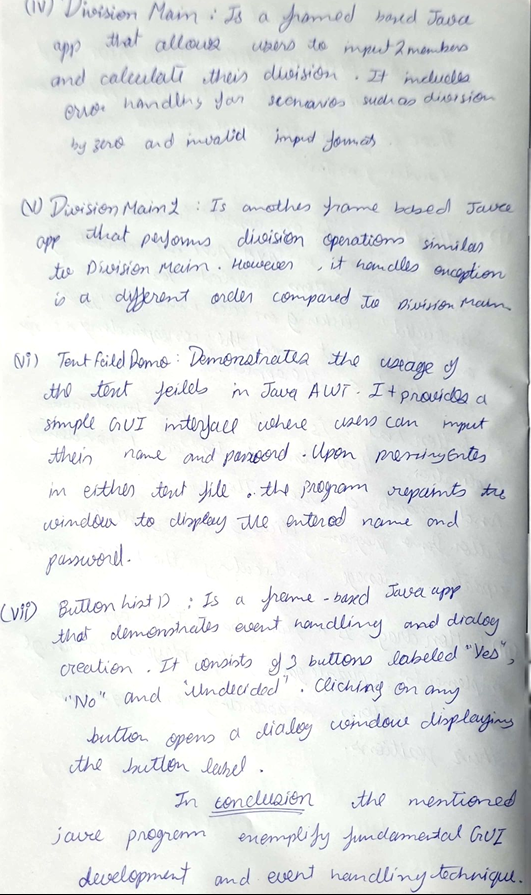 (iv) Division Main : Is a framed based Java
app that allows users to input 2 numbers
and calculate their division. It includes
error handling for scenarios such as division
by zero and invalid input formats
(v) Division Main 2 : Is another frame based Java
app that performs division operations similar
to Division Main. However, it handles exception
is a different order compared to Division Main.
(vi) Text Feild Demo : Demonstrates the useage of
the text feilds in Java AWT. It provides a
simple GUI interface where users can input
their name and password. Upon pressing Enter
in either text file, the program repaints the
window to display the entered name and
password.
(vii) Button List D : Is a frame-based Java app
that demonstrates event handling and dialog
creation. It consists of 3 buttons labeled "Yes",
"No" and "Undecided". Clicking on any
button opens a dialog window displaying
the button label.
In conclusion the mentioned
java program exemplify fundamental GUI
development and event handling technique.